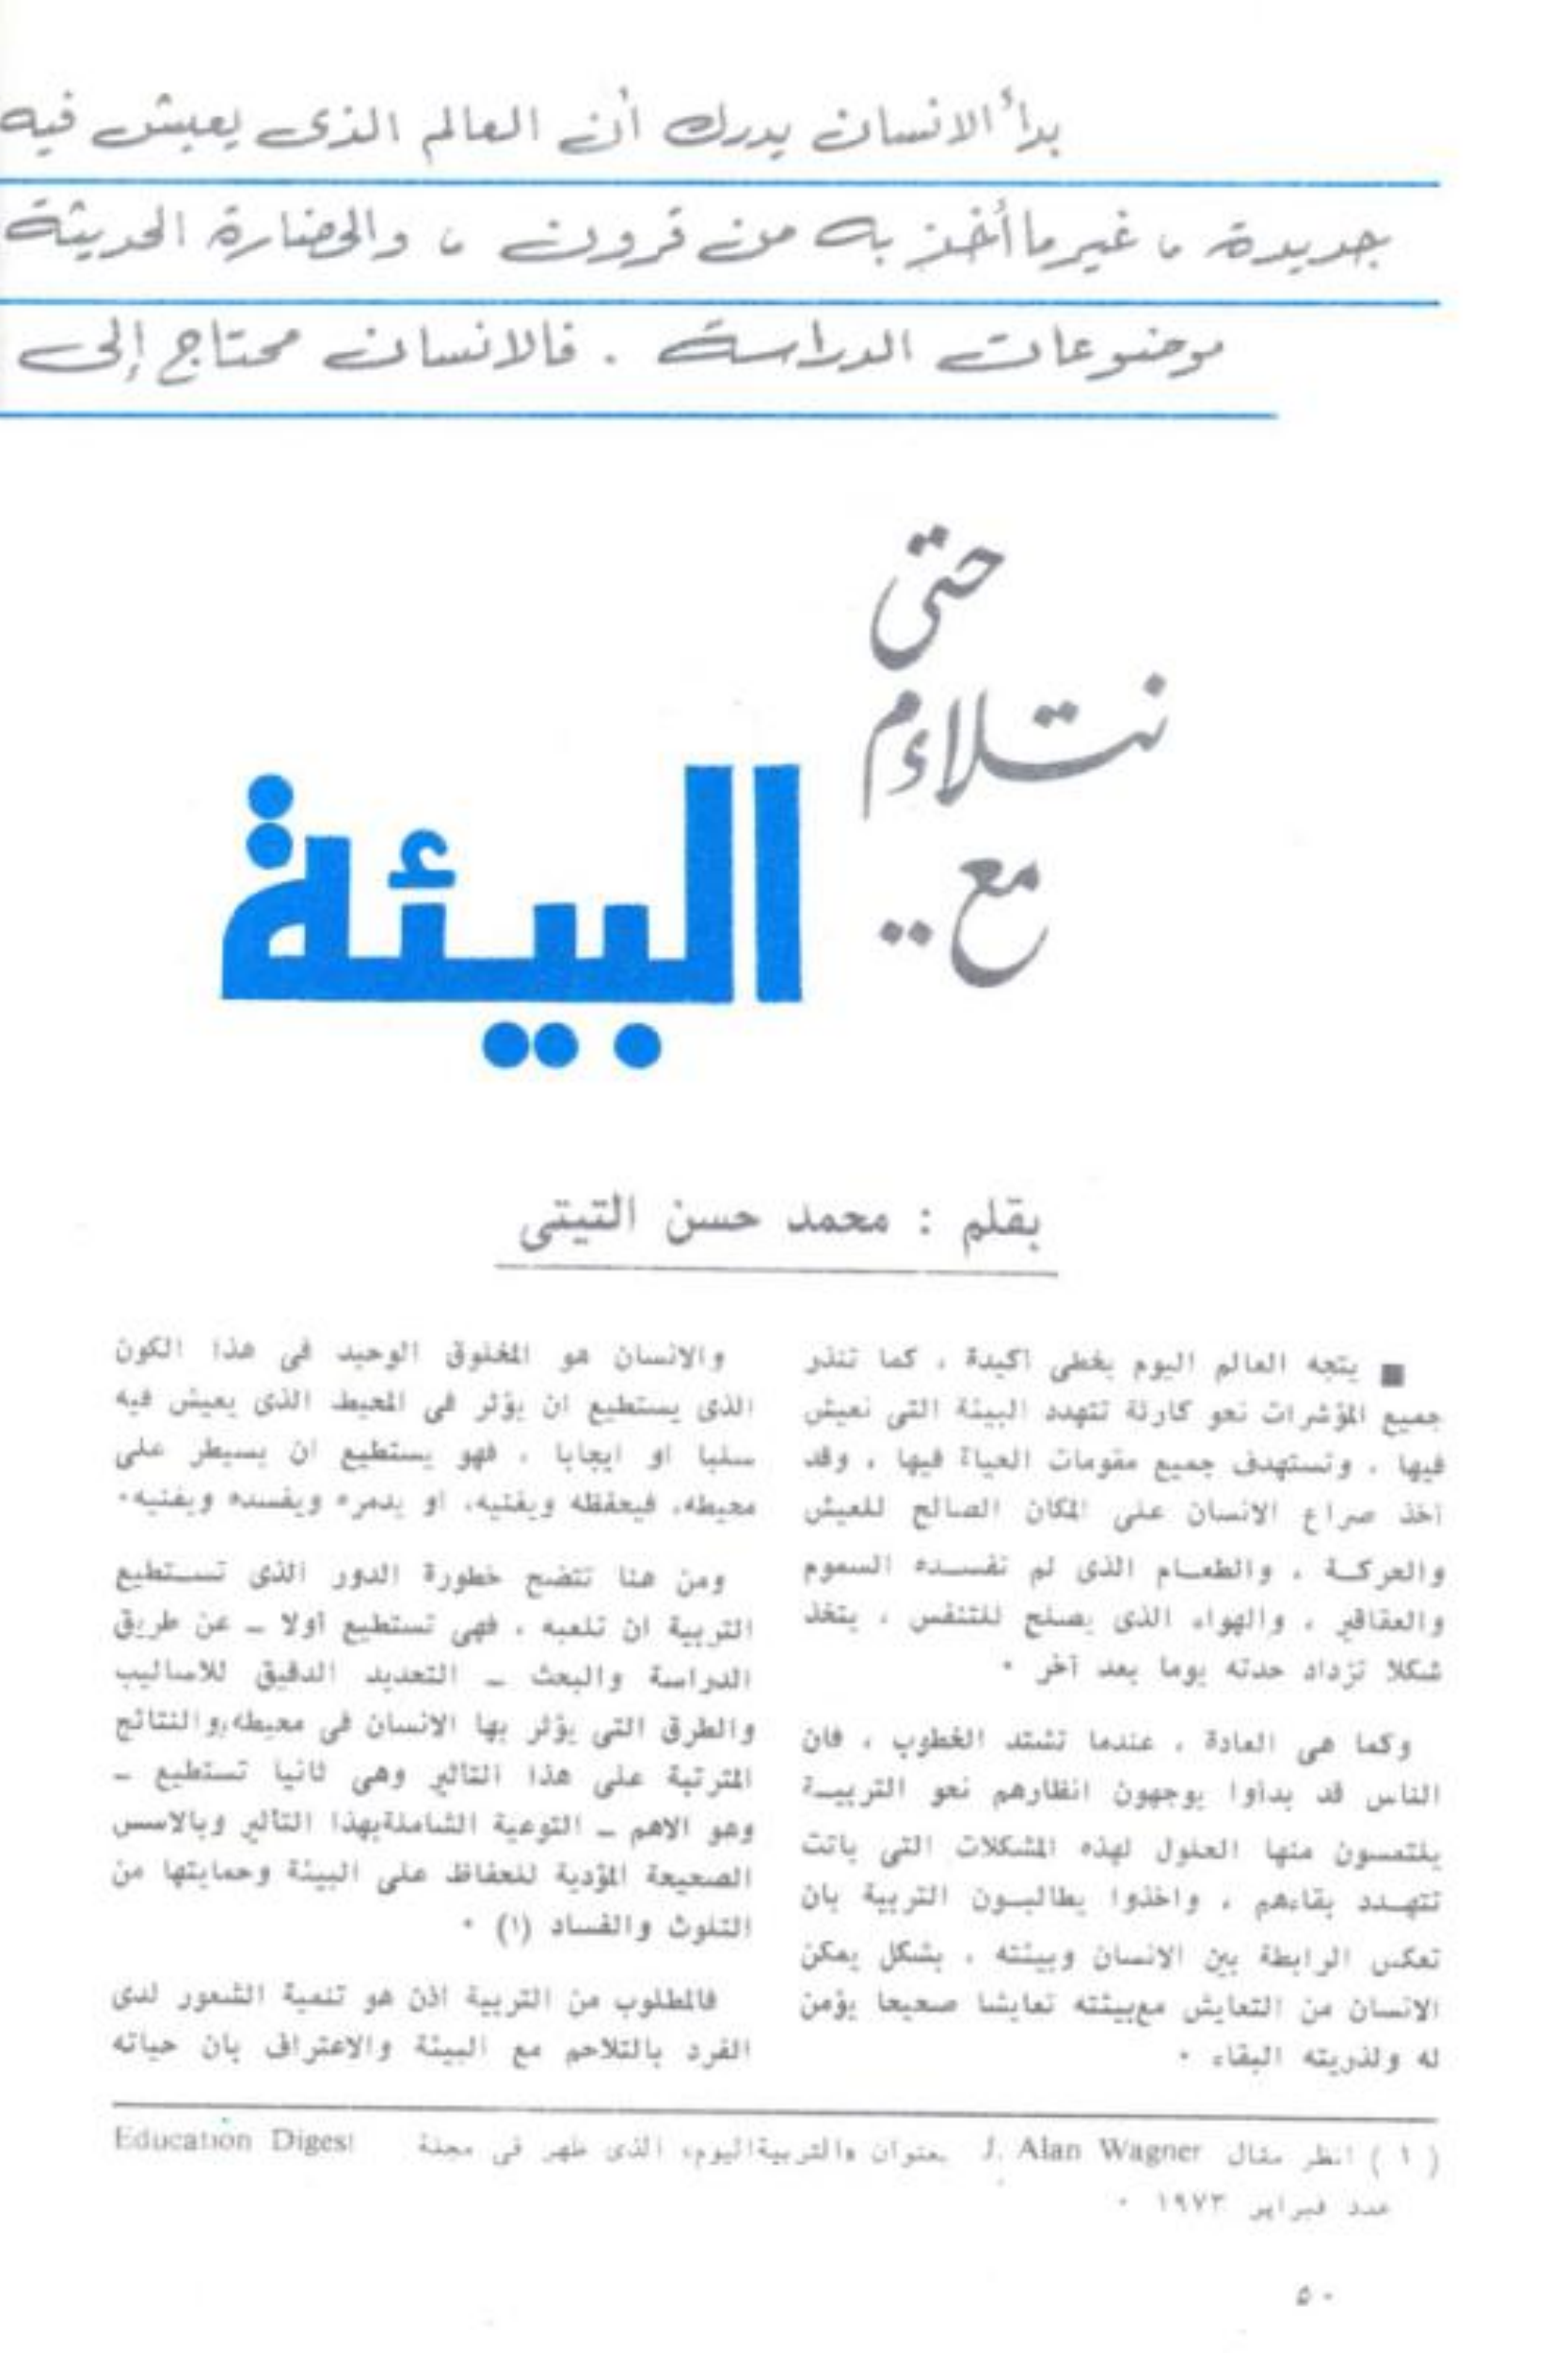 بدأ الانسان يدرك أن العالم الذى يعيش فيه
جديدة ، غير ما أخذ به من قرون ، والحضارة الحديثة
موضوعات الدراسة . فالانسان محتاج إلى
حتى
نتلاءم
مع ..
البيئة
بقلم : محمد حسن التيتى
■ يتجه العالم اليوم بخطى أكيدة ، كما تنذر
جميع المؤشرات نحو كارثة تتهدد البيئة التى نعيش
فيها ، وتستهدف جميع مقومات الحياة فيها ، وقد
أخذ صراع الانسان على المكان الصالح للعيش
والحركــة ، والطعــام الذى لم تفســده السموم
والعقاقير ، والهواء الذى يصلح للتنفس ، يتخذ
شكلا تزداد حدته يوما بعد آخر ٠
وكما هى العادة ، عندما تشتد الخطوب ، فان
الناس قد بدأوا يوجهون انظارهم نحو التربيــة
يلتمسون منها الحلول لهذه المشكلات التى باتت
تتهــدد بقاءهم ، واخذوا يطالبــون التربية بان
تعكس الرابطة بين الانسان وبيئته ، بشكل يمكن
الانسان من التعايش مع بيئته تعايشا صحيحا يؤمن
له ولذريته البقاء ٠
والانسان هو المخلوق الوحيد فى هذا الكون
الذى يستطيع ان يؤثر فى المحيط الذى يعيش فيه
سلبا او ايجابا ، فهو يستطيع ان يسيطر على
محيطه، فيحفظه ويغنيه، او يدمره ويفسده ويفنيه٠
ومن هنا تتضح خطورة الدور الذى تســتطيع
التربية ان تلعبه ، فهى تستطيع أولا ــ عن طريق
الدراسة والبحث ــ التحديد الدقيق للاساليب
والطرق التى يؤثر بها الانسان فى محيطه،والنتائج
المترتبة على هذا التاثير وهى ثانيا تستطيع ــ
وهو الاهم ــ التوعية الشاملةبهذا التأثير وبالاسس
الصحيحة المؤدية للحفاظ على البيئة وحمايتها من
التلوث والفساد (١) ٠
فالمطلوب من التربية اذن هو تنمية الشعور لدى
الفرد بالتلاحم مع البيئة والاعتراف بان حياته
( ١ ) انظر مقال J. Alan Wagner بعنوان «التربيةاليوم» الذى ظهر فى مجلة Education Digest
عدد فبراير ١٩٧٣ ٠
٥٠